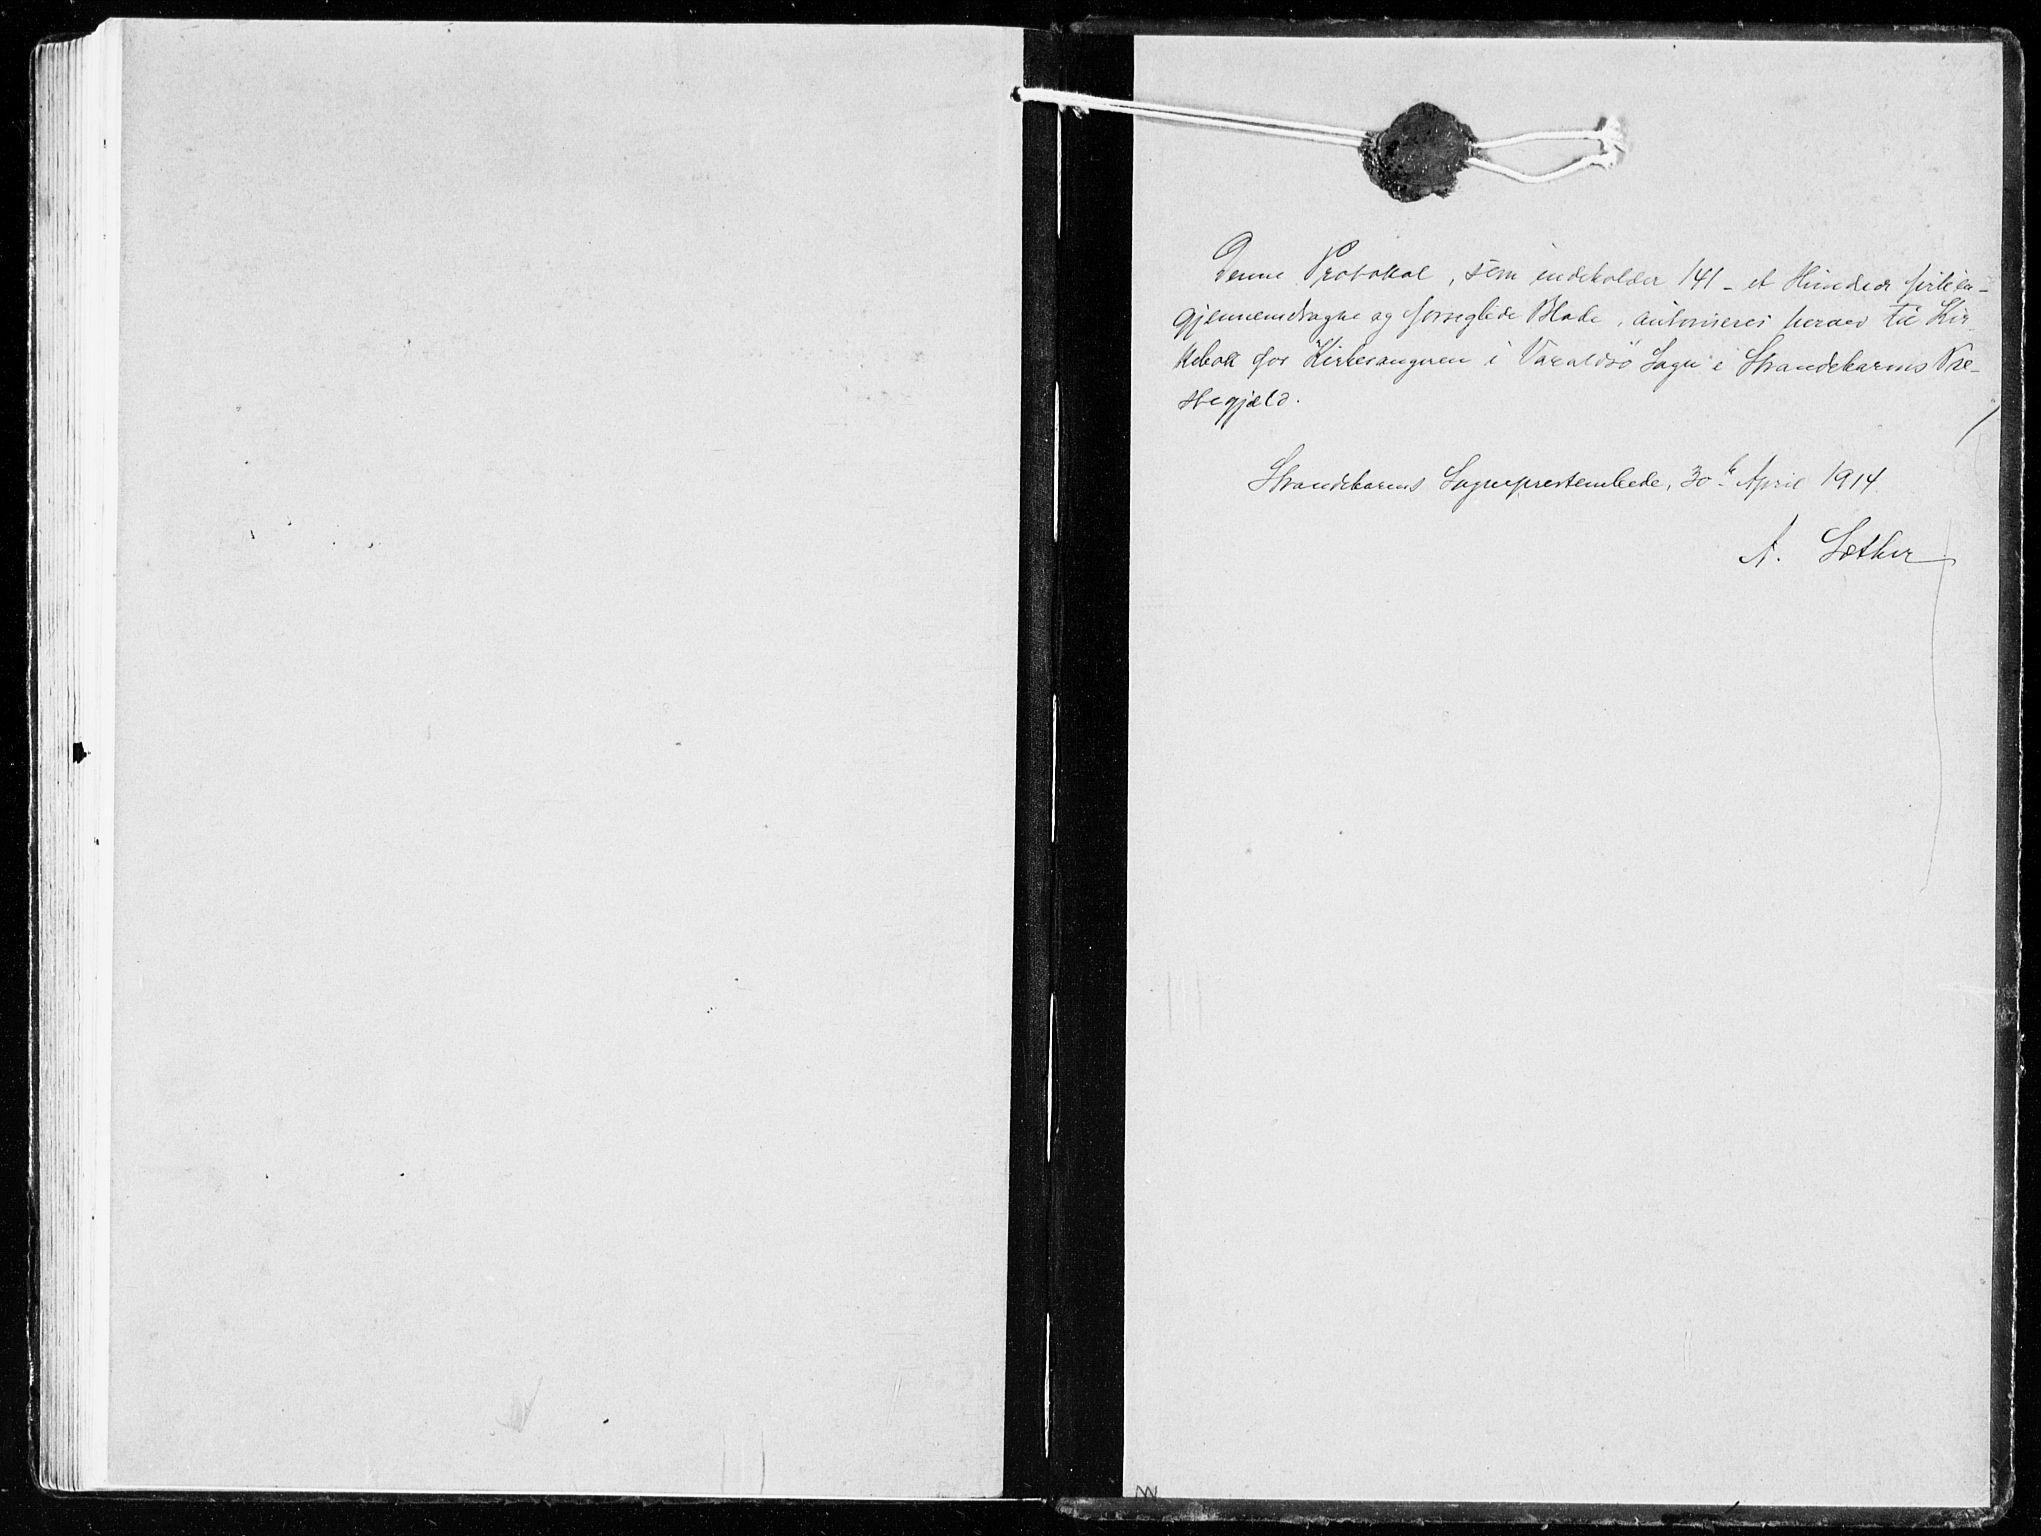 Denne Protokol, som indeholder 141 - et Hundrede firtien -
gjennemdragne og forseglede Blade, autoriseres herved til Kir-
kebok for Kirkesangeren i Varaldsø Sogn i Strandebarms Præ-
stegjæld.
Strandebarms Sogneprestembede, 30te April 1914.
A. Sæther